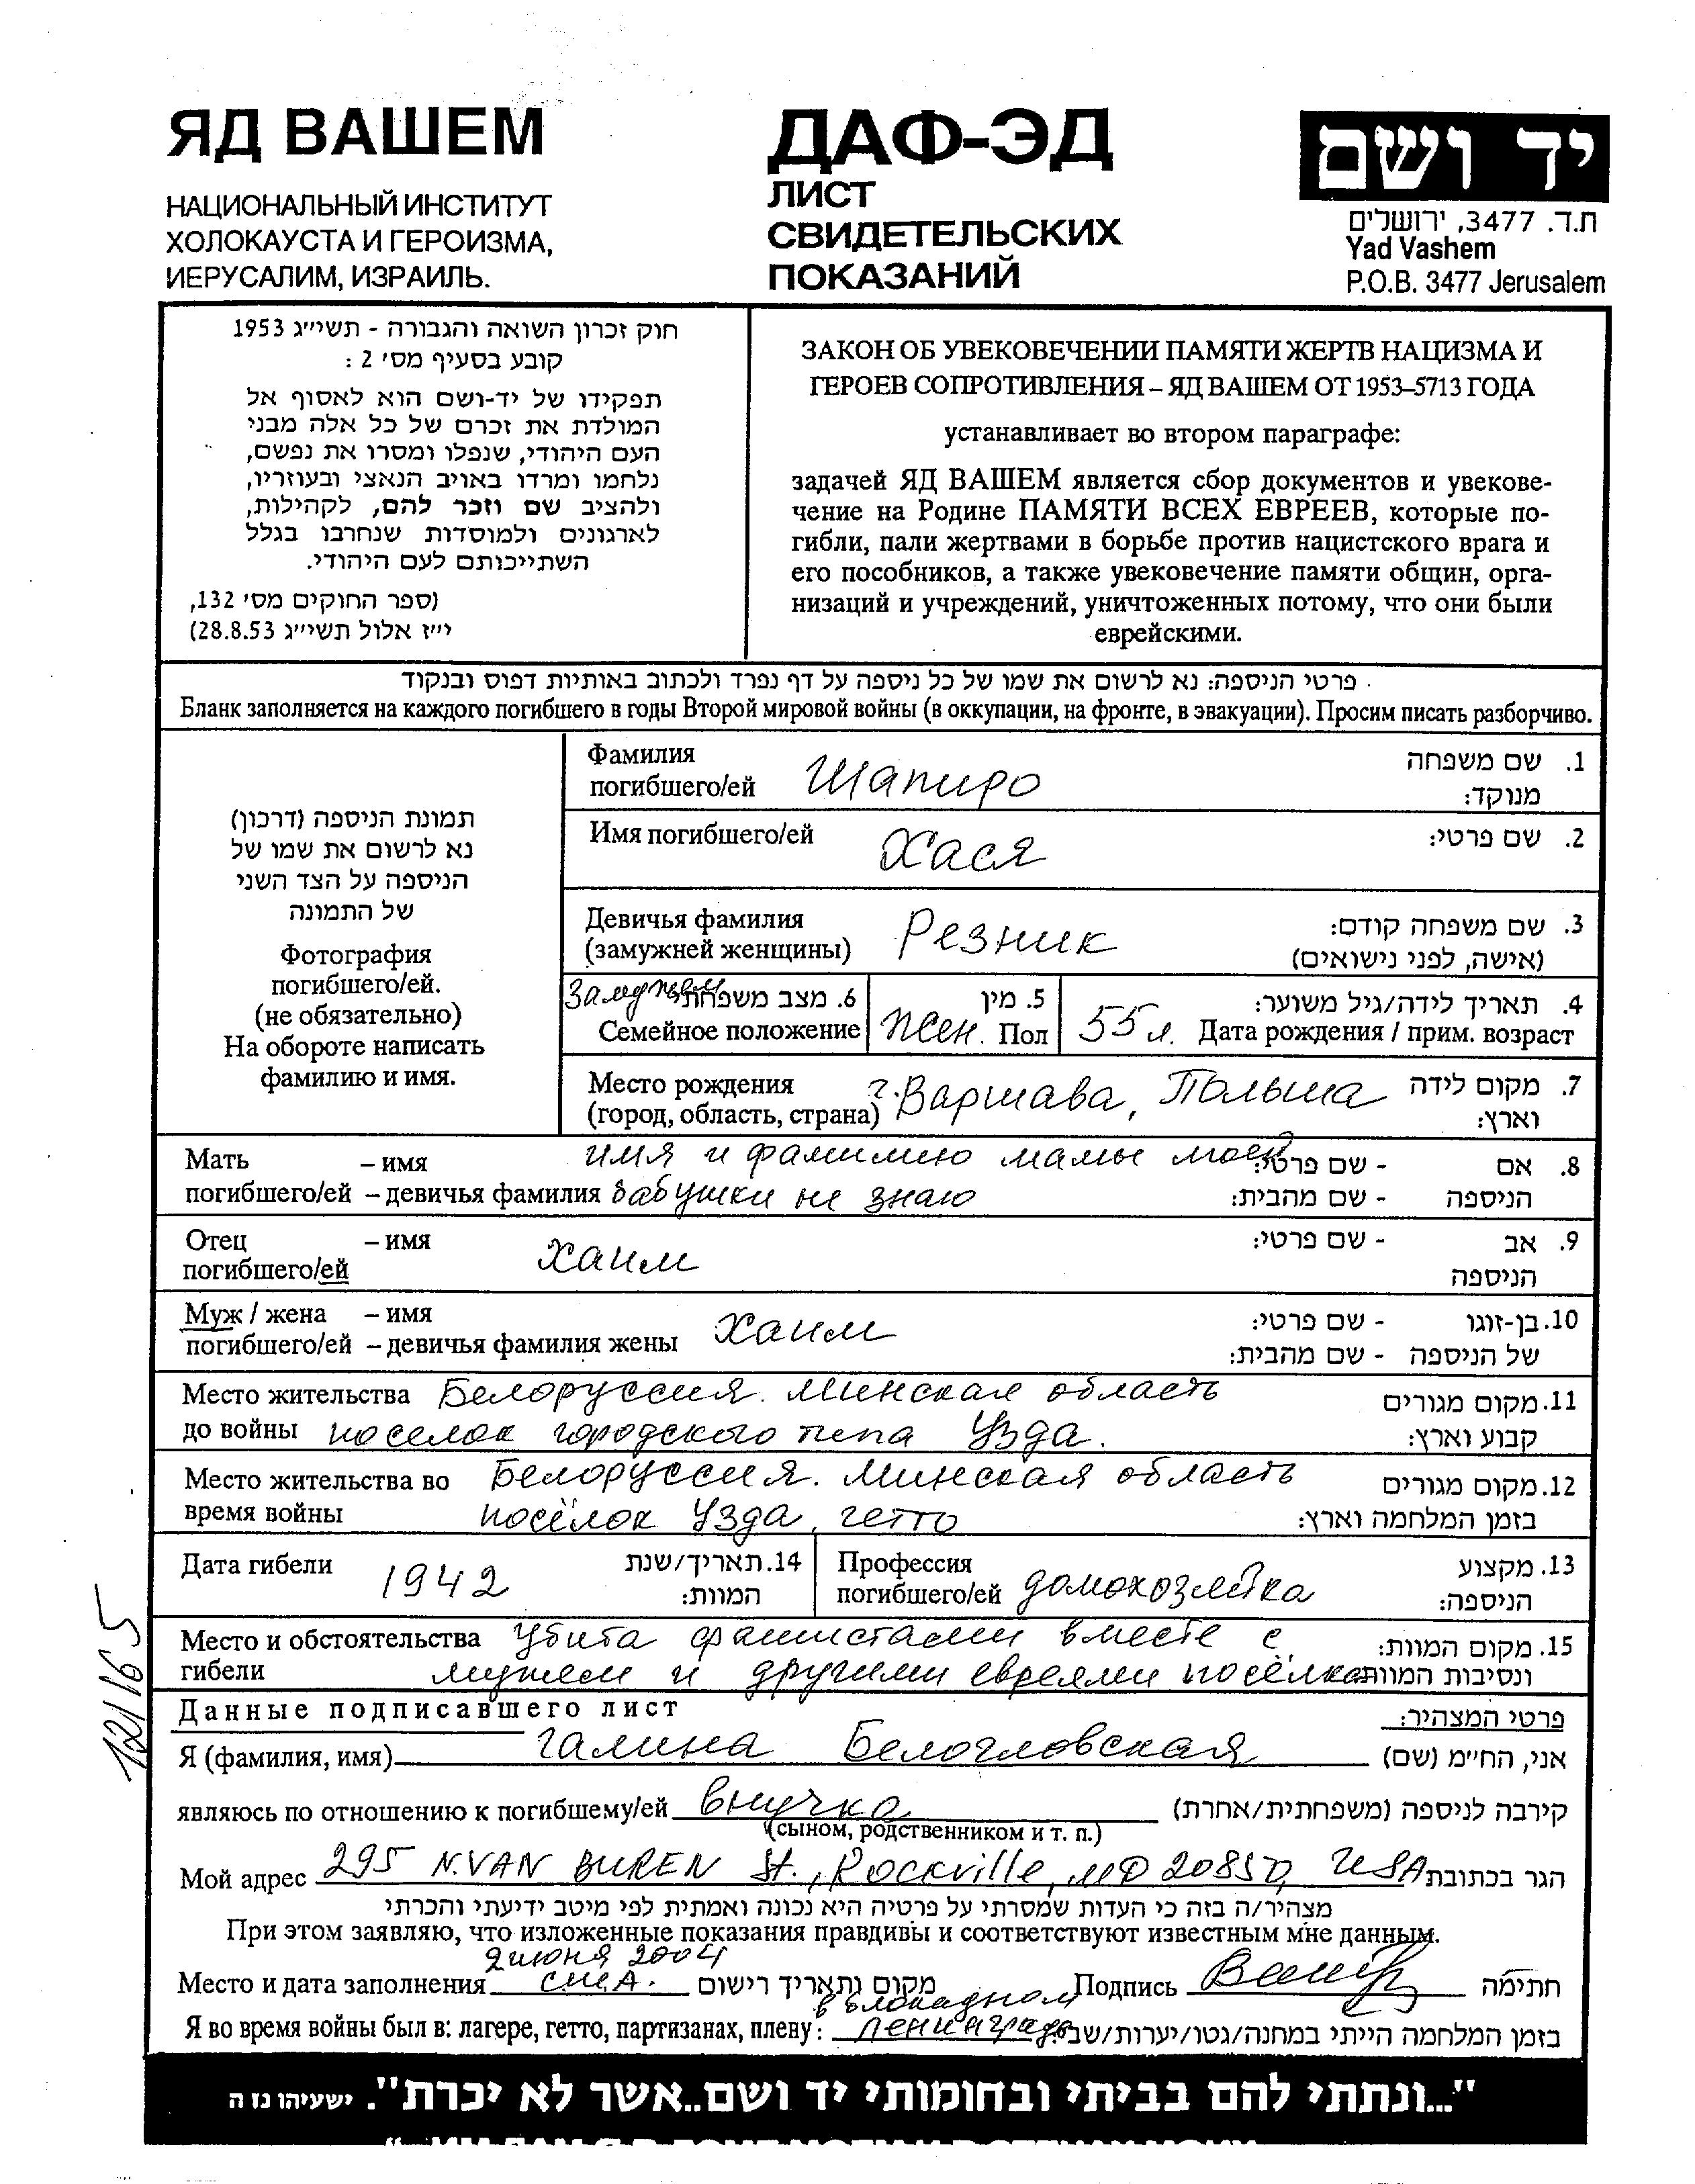 ЯД ВАШЕМ
НАЦИОНАЛЬНЫЙ ИНСТИТУТ
ХОЛОКАУСТА И ГЕРОИЗМА,
ИЕРУСАЛИМ, ИЗРАИЛЬ.
ДАФ-ЭД
ЛИСТ
СВИДЕТЕЛЬСКИХ
ПОКАЗАНИЙ
יד ושם
ת.ד. 3477, ירושלים
Yad Vashem
P.O.B. 3477 Jerusalem
חוק זכרון השואה והגבורה - תשי״ג 1953
קובע בסעיף מס׳ 2 :
תפקידו של יד-ושם הוא לאסוף אל
המולדת את זכרם של כל אלה מבני
העם היהודי, שנפלו ומסרו את נפשם,
נלחמו ומרדו באויב הנאצי ובעוזריו,
ולהציב שם וזכר להם, לקהילות,
לארגונים ולמוסדות שנחרבו בגלל
השתייכותם לעם היהודי.
(ספר החוקים מס׳ 132,
י״ז אלול תשי״ג 28.8.53)
ЗАКОН ОБ УВЕКОВЕЧЕНИИ ПАМЯТИ ЖЕРТВ НАЦИЗМА И
ГЕРОЕВ СОПРОТИВЛЕНИЯ – ЯД ВАШЕМ ОТ 1953–5713 ГОДА
устанавливает во втором параграфе:
задачей ЯД ВАШЕМ является сбор документов и увекове-
чение на Родине ПАМЯТИ ВСЕХ ЕВРЕЕВ, которые по-
гибли, пали жертвами в борьбе против нацистского врага и
его пособников, а также увековечение памяти общин, орга-
низаций и учреждений, уничтоженных потому, что они были
еврейскими.
פרטי הניספה: נא לרשום את שמו של כל ניספה על דף נפרד ולכתוב באותיות דפוס ובנקוד
Бланк заполняется на каждого погибшего в годы Второй мировой войны (в оккупации, на фронте, в эвакуации). Просим писать разборчиво.
תמונת הניספה (דרכון)
נא לרשום את שמו של
הניספה על הצד השני
של התמונה
Фотография
погибшего/ей.
(не обязательно)
На обороте написать
фамилию и имя.
Фамилия 1. שם משפחה
погибшего/ей Шапиро מנוקד:
Имя погибшего/ей Хася 2. שם פרטי:
Девичья фамилия 3. שם משפחה קודם:
(замужней женщины) Резник (אישה, לפני נישואים)
замужем 6. מצב משפחתי 5. מין 4. תאריך לידה/גיל משוער:
Семейное положение жен. Пол 55 л. Дата рождения / прим. возраст
Место рождения г. Варшава, Польша 7. מקום לידה
(город, область, страна) וארץ:
Мать – имя имя и фамилию мамы моей - שם פרטי: 8. אם
погибшего/ей – девичья фамилия бабушки не знаю - שם מהבית: הניספה
Отец – имя Хаим - שם פרטי: 9. אב
погибшего/ей הניספה
Муж / жена – имя Хаим - שם פרטי: 10. בן-זוגו
погибшего/ей – девичья фамилия жены - שם מהבית: של הניספה
Место жительства Белоруссия. Минская область 11. מקום מגורים
до войны поселок городского типа Узда. קבוע וארץ:
Место жительства во Белоруссия. Минская область 12. מקום מגורים
время войны посёлок Узда, гетто בזמן המלחמה וארץ:
Дата гибели 1942 14. תאריך/שנת Профессия 13. מקצוע
המוות: погибшего/ей домохозяйка הניספה:
Место и обстоятельства Убита фашистами вместе с 15. מקום המוות:
гибели мужем и другими евреями посёлка ונסיבות המוות
Данные подписавшего лист פרטי המצהיר:
Я (фамилия, имя) Галина Белогловская אני, הח״מ (שם)
являюсь по отношению к погибшему/ей внучка קירבה לניספה (משפחתית/אחרת)
(сыном, родственником и т. п.)
Мой адрес 295 N. VAN BUREN St., Rockville, MD 20850, USA הגר בכתובת
מצהיר/ה בזה כי העדות שמסרתי על פרטיה היא נכונה ואמתית לפי מיטב ידיעתי והכרתי
При этом заявляю, что изложенные показания правдивы и соответствуют известным мне данным.
2 июня 2004
Место и дата заполнения США. מקום ותאריך רישום Подпись חתימה
в блокадном
Я во время войны был в: лагере, гетто, партизанах, плену: Ленинграде בזמן המלחמה הייתי במחנה/גטו/יערות/שבי:
12/165
"...ונתתי להם בביתי ובחומותי יד ושם..אשר לא יכרת". ישעיהו נז ה